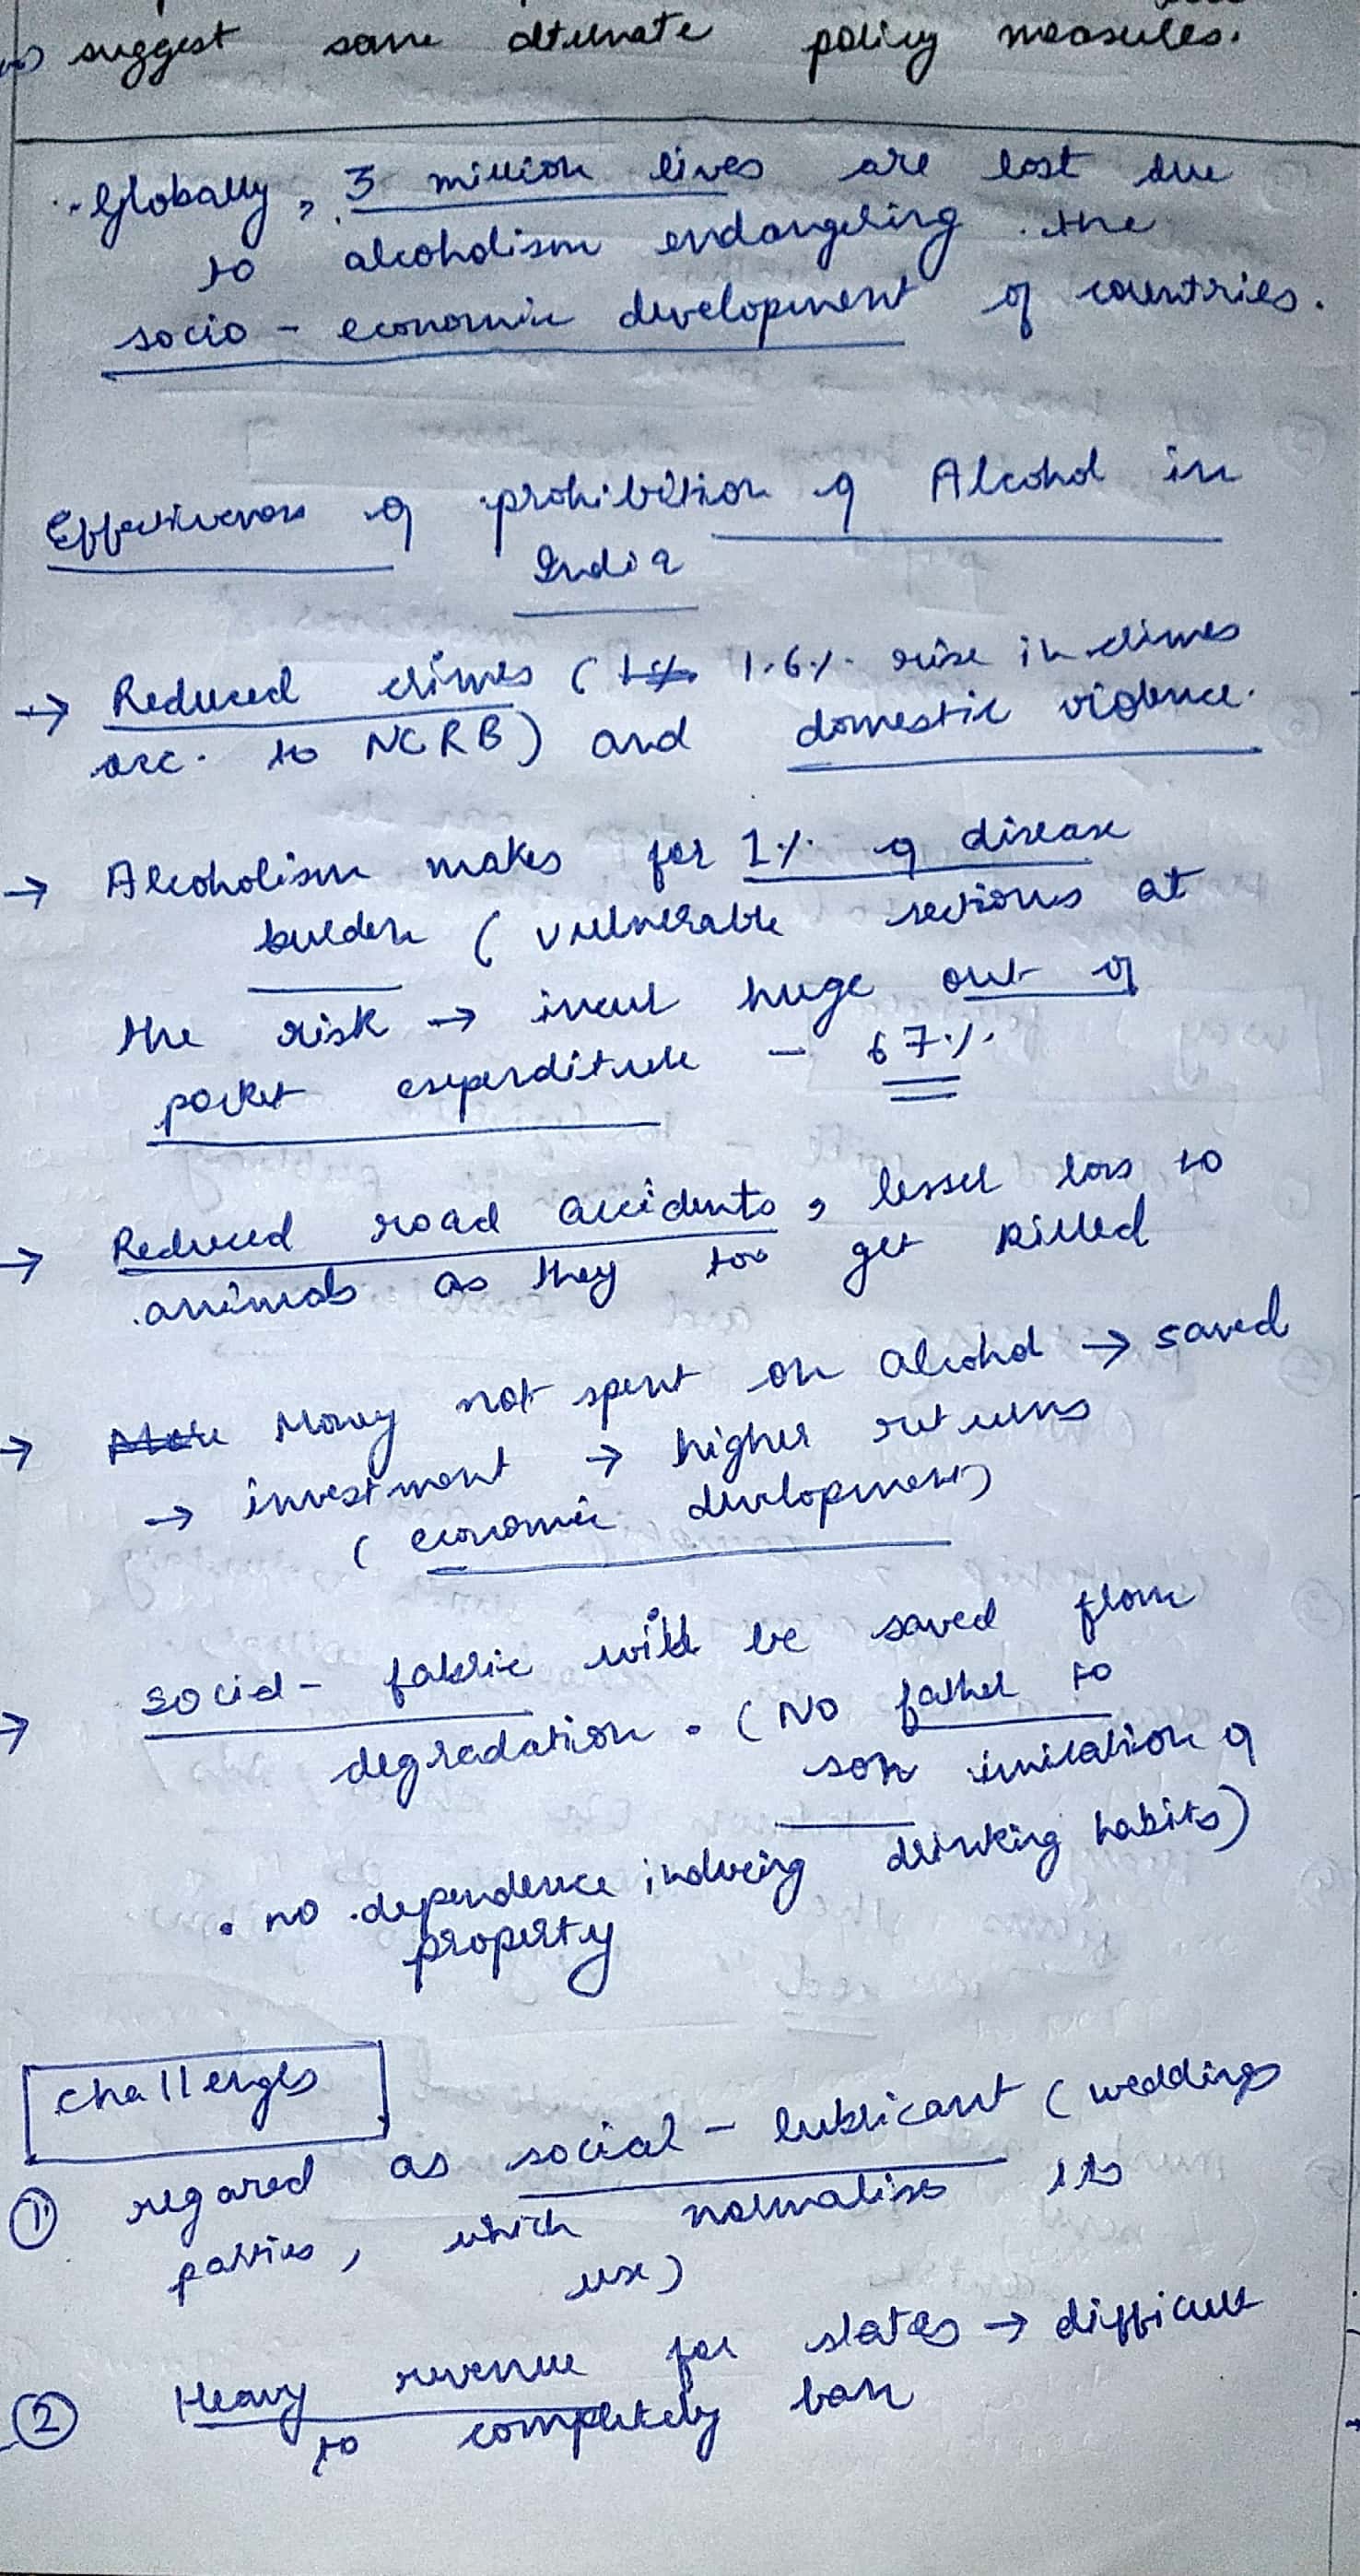 suggest some alternate policy measures.
Globally, 3 million lives are lost due
to alcoholism endangering the
socio-economic development of countries.
Effectiveness of prohibition of Alcohol in
India
→ Reduced crimes ( 1.6% rise in crimes
acc. to NCRB) and domestic violence.
→ Alcoholism makes for 1% of disease
burden ( vulnerable sections at
the risk → incur huge out of
pocket expenditure - 67%.
→ Reduced road accidents, lesser loss to
animals as they too get killed
→ More Money not spent on alcohol → saved
→ investment → higher returns
( economic development)
→ social-fabric will be saved from
degradation. (No father to
son imitation of
drinking habits)
• no dependence inducing
property
Challenges
① regared as social-lubricant (weddings
parties, which normalises its
use)
② Heavy revenue for states → difficult
to completely ban